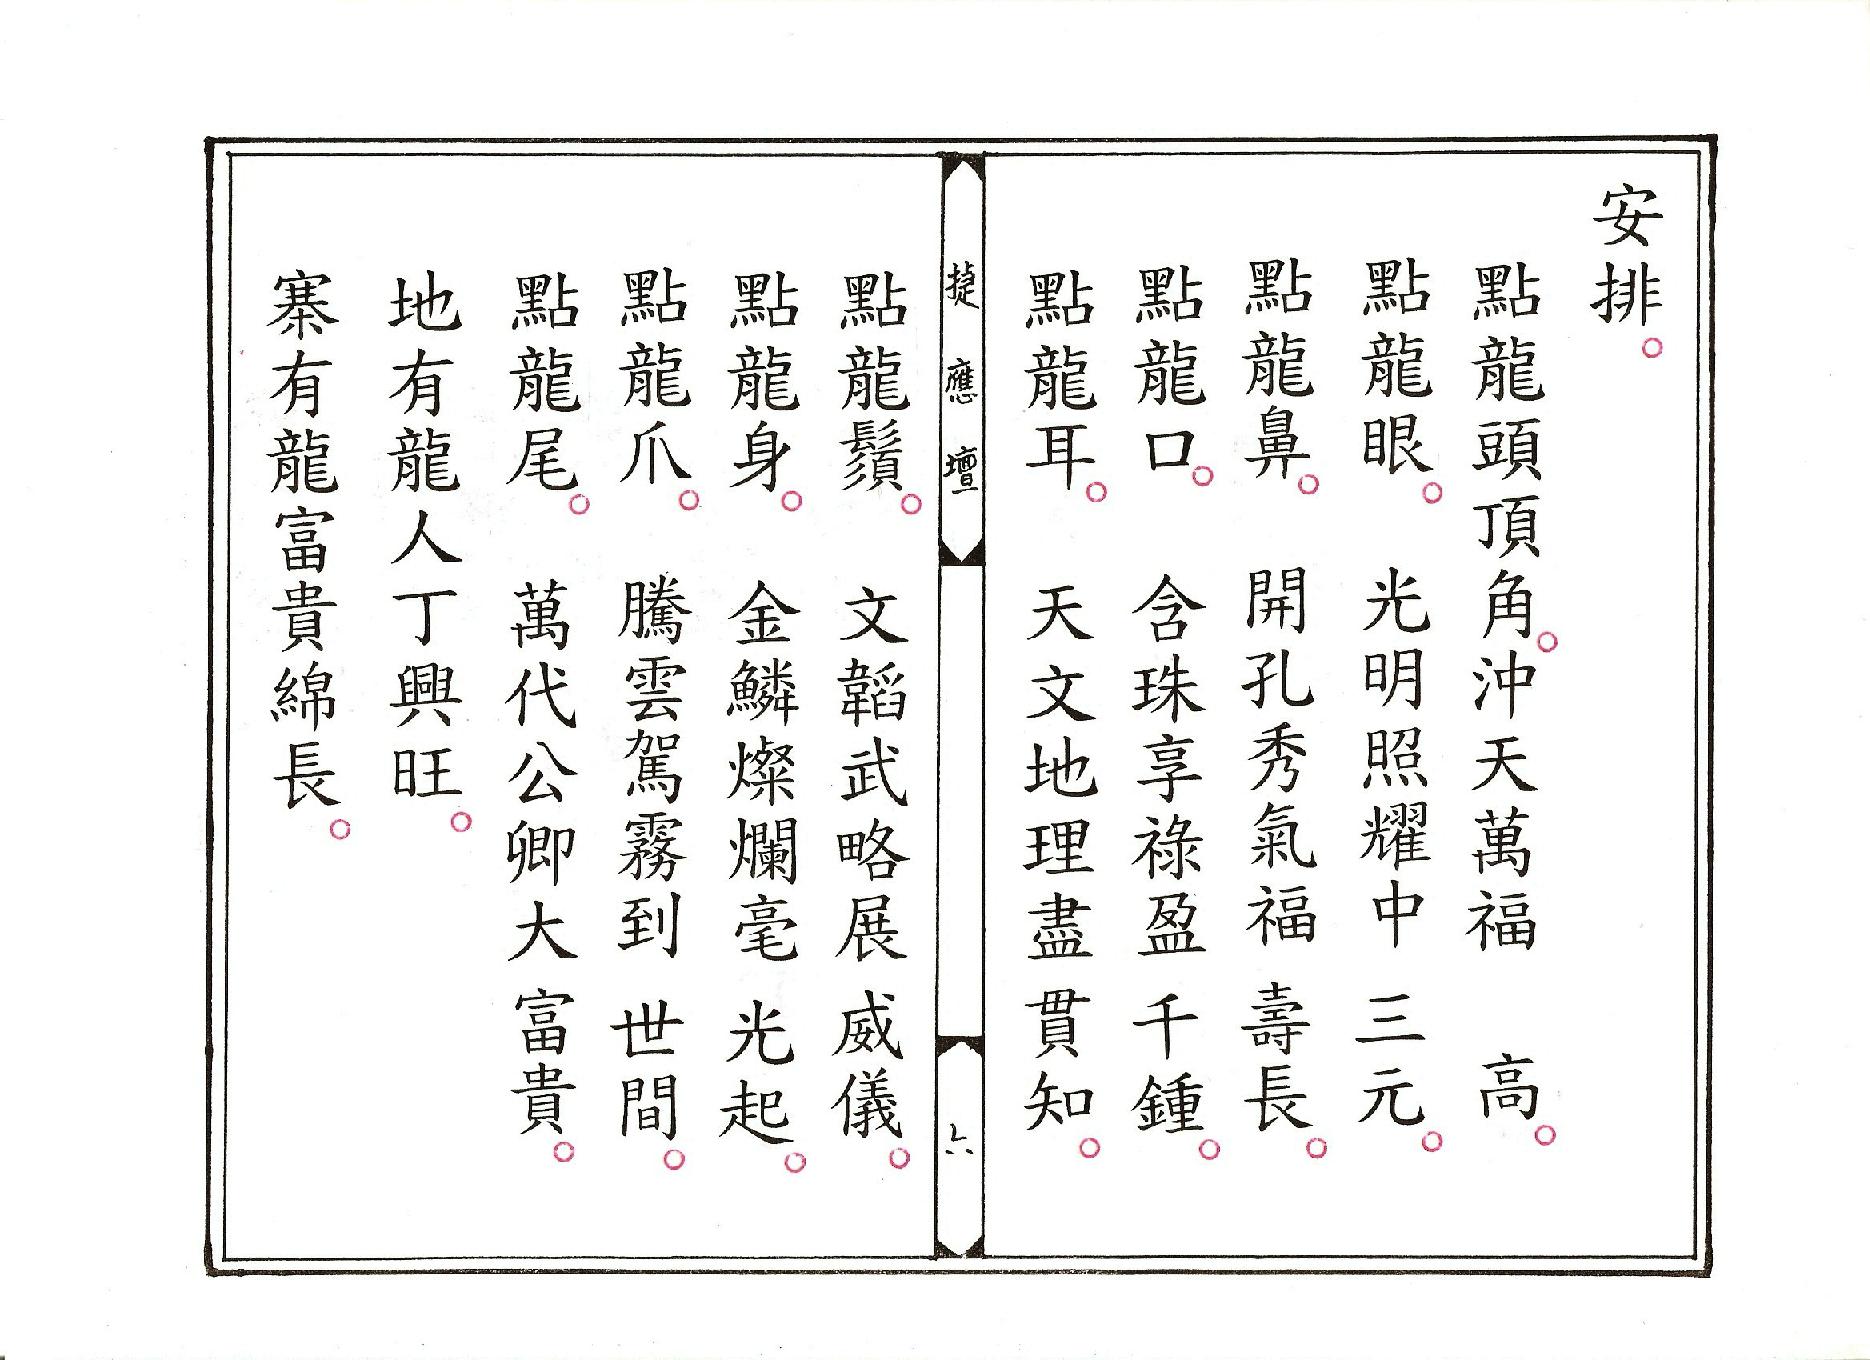 安排。
點龍頭頂角。沖天萬福高。
點龍眼。光明照耀中三元。
點龍鼻。開孔秀氣福壽長。
點龍口。含珠享祿盈千鍾。
點龍耳。天文地理盡貫知。
捷應壇
六
點龍鬚。文韜武略展威儀。
點龍身。金鱗燦爛毫光起。
點龍爪。騰雲駕霧到世間。
點龍尾。萬代公卿大富貴。
地有龍人丁興旺。
寨有龍富貴綿長。